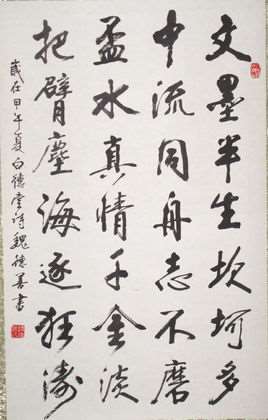 文墨半生坎坷多
中流同舟志不磨
盃水真情千金淡
把臂塵海逐狂涛
歲在甲午夏白德堂诗魏德善書